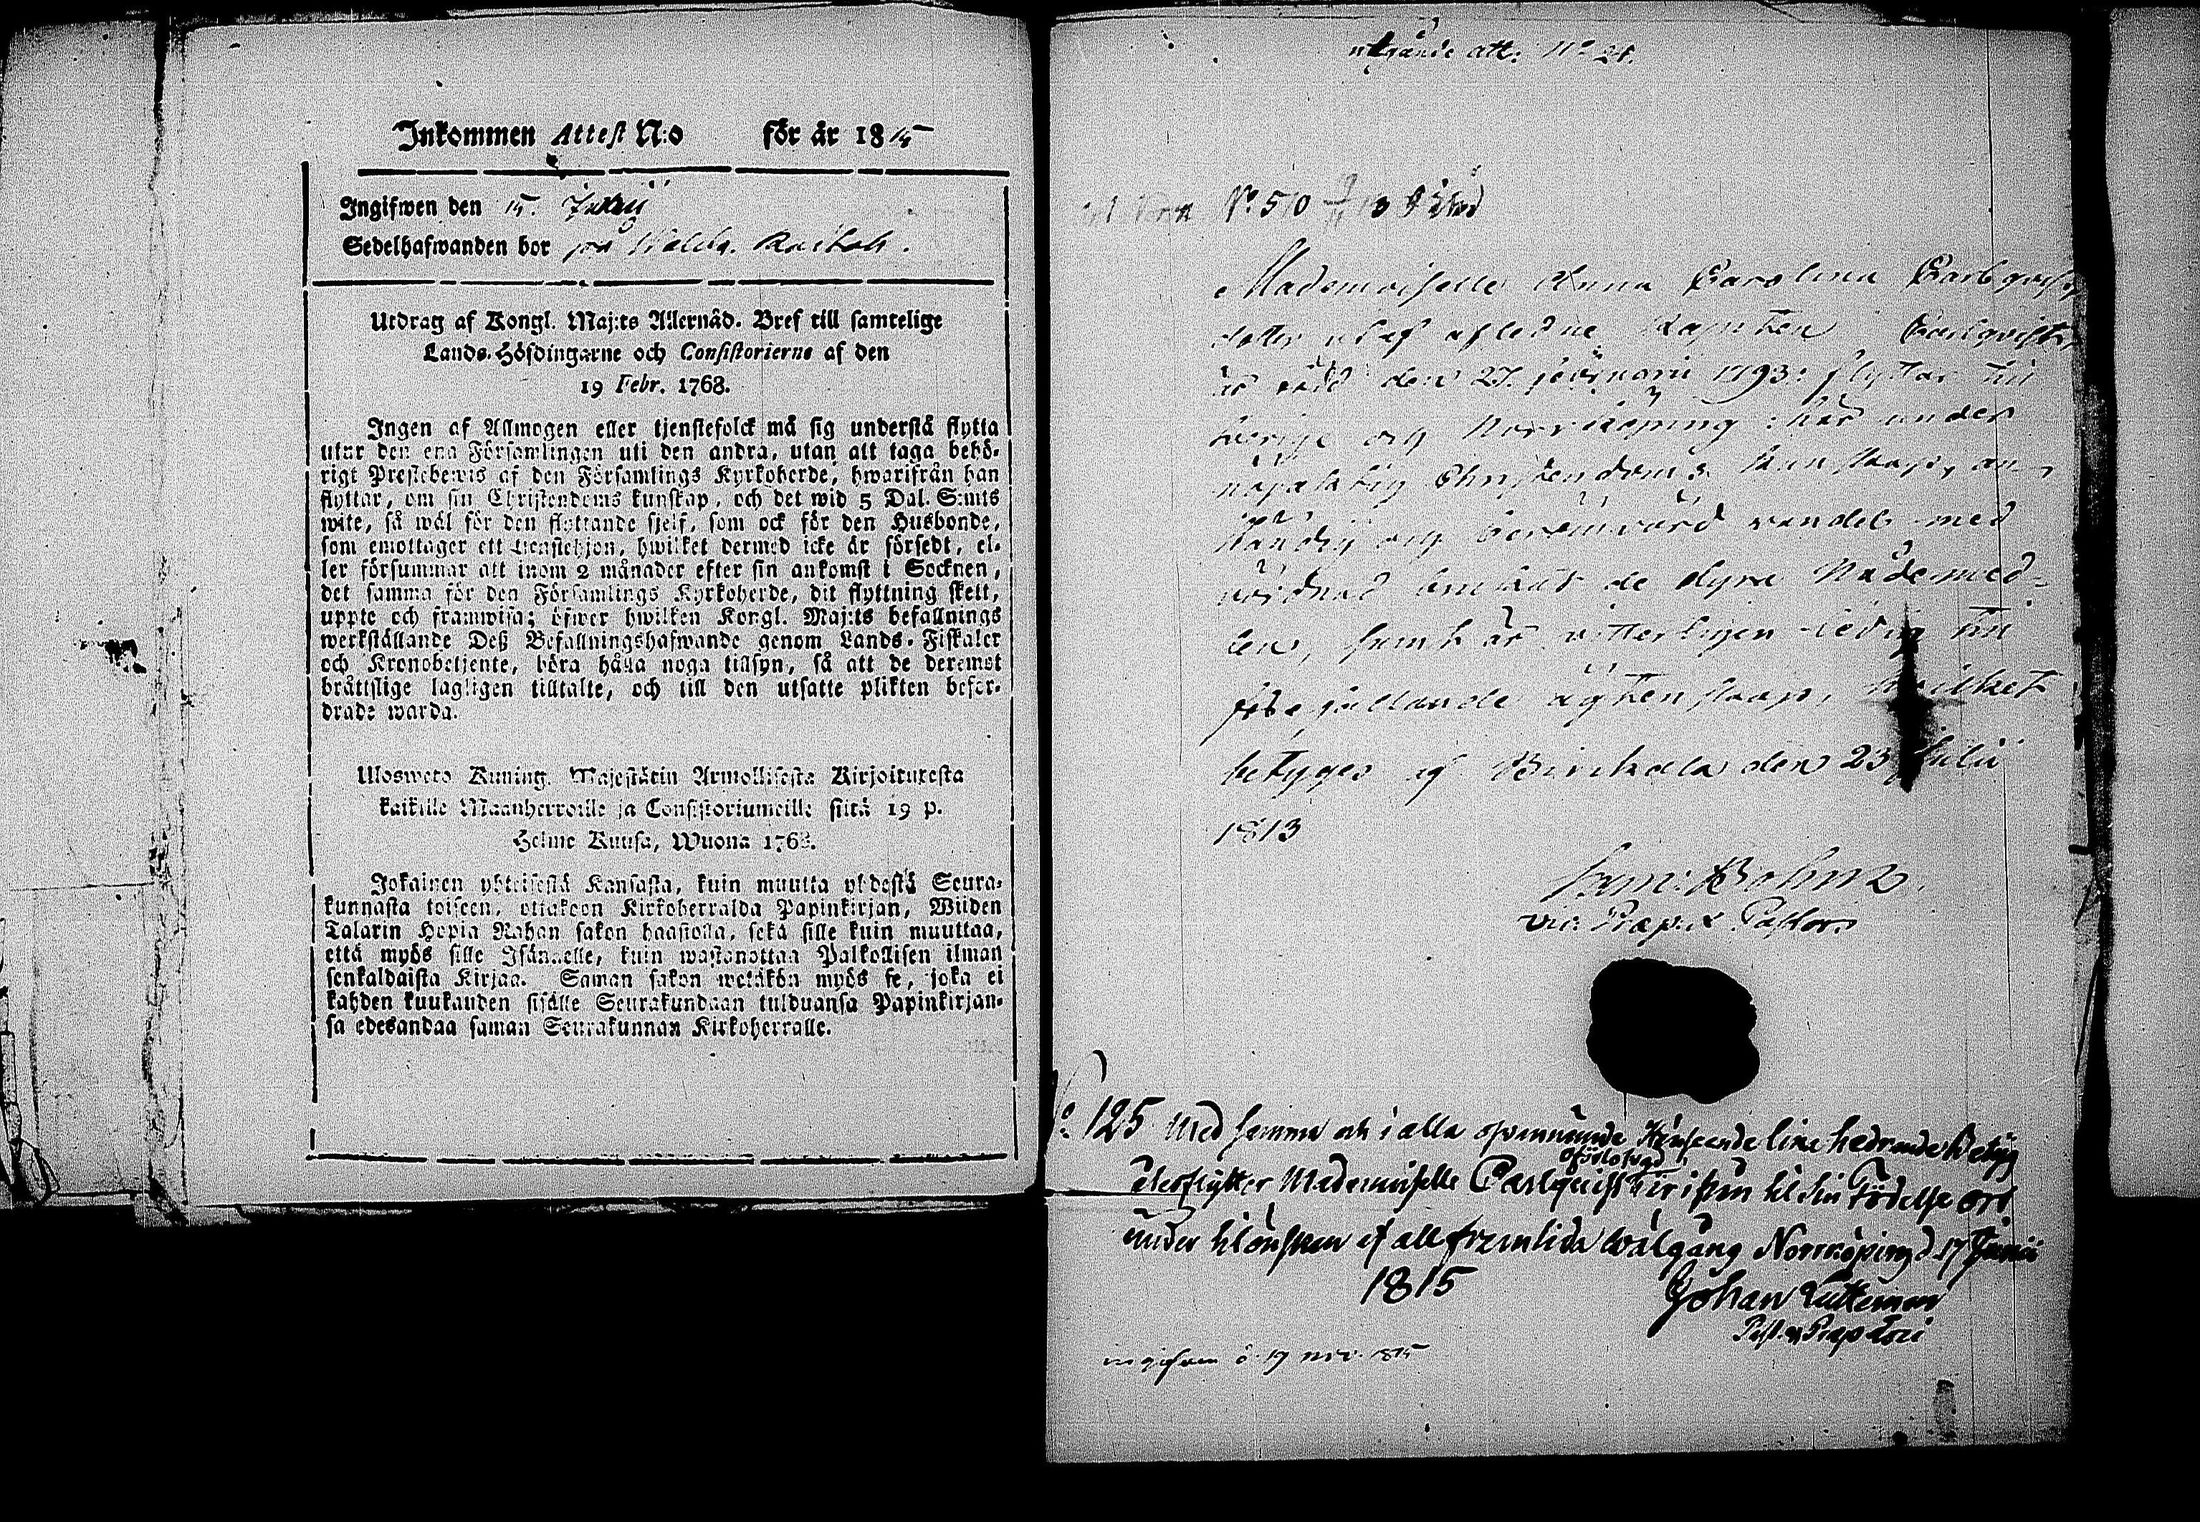 Inkommen Attest N:o för år 1815
Ingifwen den 15. Julii
Sedelhafwanden bor på
Utdrag af Kongl. Maj:ts Allernåd. Bref till samtelige
Lands-Höfdingarne och Consistorierne af den
19 Febr. 1768.
Ingen af Allmogen eller tjenstefolck må sig understå flytta
utur den ena Församlingen uti den andra, utan att taga behö-
rigt Prestebewis af den Församlings Kyrkoherde, hwarifrån han
flyttar, om sin Christendoms kunskap, och det wid 5 Dal. S:mts
wite, så wäl för den flyttande sjelf, som ock för den Husbonde,
som emottager ett tienstehjon, hwilket dermed icke är försedt, el-
ler försummar att inom 2 månader efter sin ankomst i Socknen,
det samma för den Församlings Kyrkoherde, dit flyttning skett,
uppte och framwisa; öfwer hwilken Kongl. Maj:ts befallnings
werkställande Deß Befallningshafwande genom Lands-Fiskaler
och Kronobetjente, böra hålla noga tillsyn, så att de deremot
bråttslige lagligen tilltalte, och till den utsatte plikten befor-
drade warda.
Ulosweto Kuning. Majestätin Armollisesta Kirjoituxesta
kaikille Maanherroille ja Consistoriumeille siitä 19 p.
Helme Kuusa, Wuona 1768.
Jokainen yhteisestä Kansasta, kuin muutta yhdestä Seura-
kunnasta toiseen, ottakoon Kirkoherralda Papinkirjan, Wiiden
Talarin Hopia Rahan sakon haastolla, sekä sille kuin muuttaa,
että myös sille Isännelle, kuin wastanottaa Palkollisen ilman
senkaldaista Kirjaa. Saman sakon wetäkön myös se, joka ei
kahden kuukauden sisälle Seurakundaan tulduansa Papinkirjan-
sa edesandaa saman Seurakunnan Kirkoherralle.
utgånde att. No 21.
No 510
Mademoiselle Anna Carolina Carlqvist,
dotter utaf afledne Kapiten Carlqvist,
är född den 27. januarii 1793: flyttar till
Sverige och Norrköping: har under
Christendoms kunskap, an-
ständig och berömvärd vandel med
vördnad brukat de dyra Nådemed-
len, samt är vitterligen ledig till
förefallande ägtenskap, hvilket
betyges af Birckala den 23 Julii
1813
Sam: Bohm
vic: Præp. & Pastor
No 125 Med samma och i alla ofvannämde Hänseende lika hedrande Betyg
återflyttar Mademoiselle Carlquist til sin Födelse ort
under tilönskan af all framtida wälgång Norrköping d. 17 Junii
1815
Johan
ingifven d. 19 nov. 1815